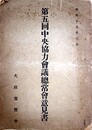 第五回中央協力會議總常會意見書
大政翼賛會